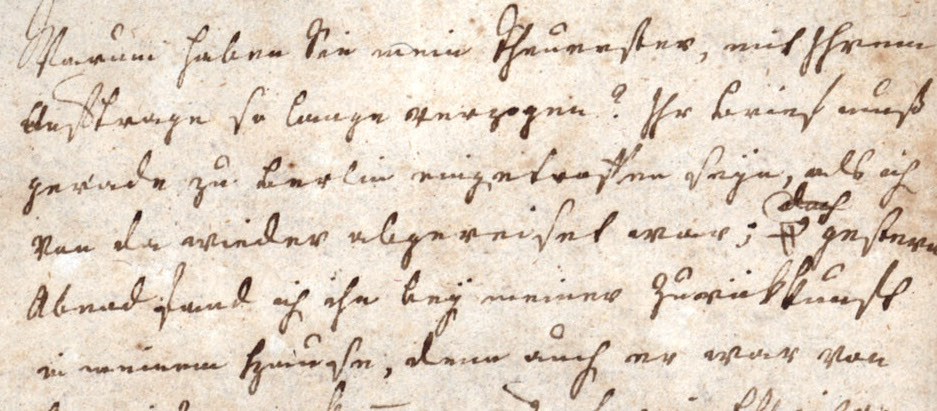 Warum haben Sie mein Theuerster, mit Ihrem
Auftrage so lange verzogen? Ihr Brief muß
gerade zu Berlin eingetroffen seyn, als ich
von da wieder abgereiset war; doch gestern
Abend fand ich ihn bey meiner Zurückkunft
in meinem Hause, denn auch er war von